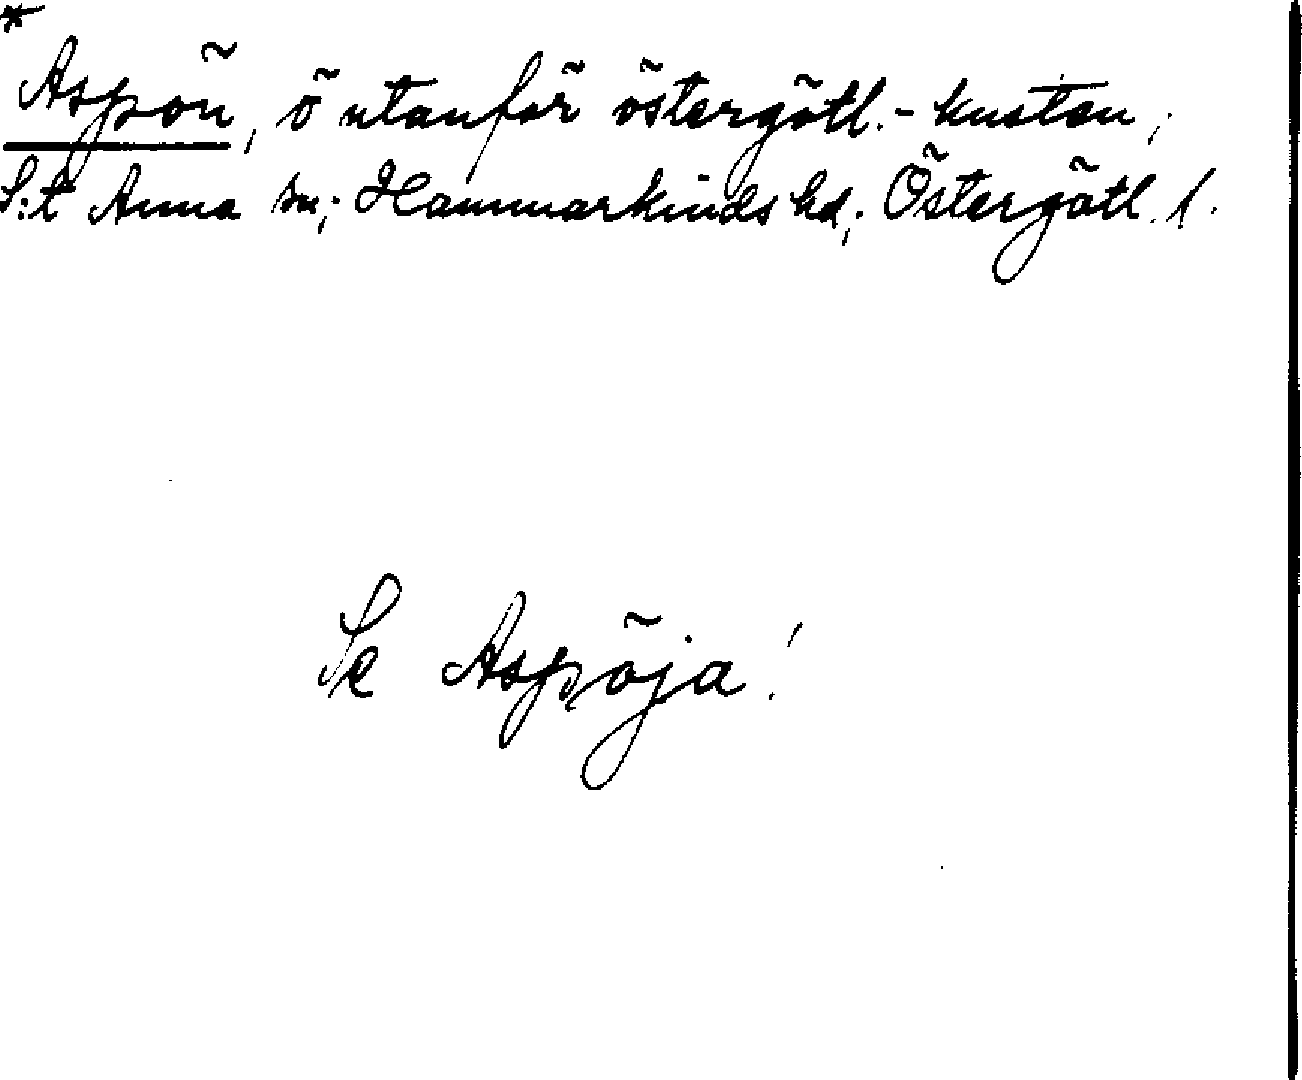 *
Aspön, ö utanför östergötl.-kusten;
S:t Anna sn; Hammarkinds hd; Östergötl. l.
Se Aspöja!